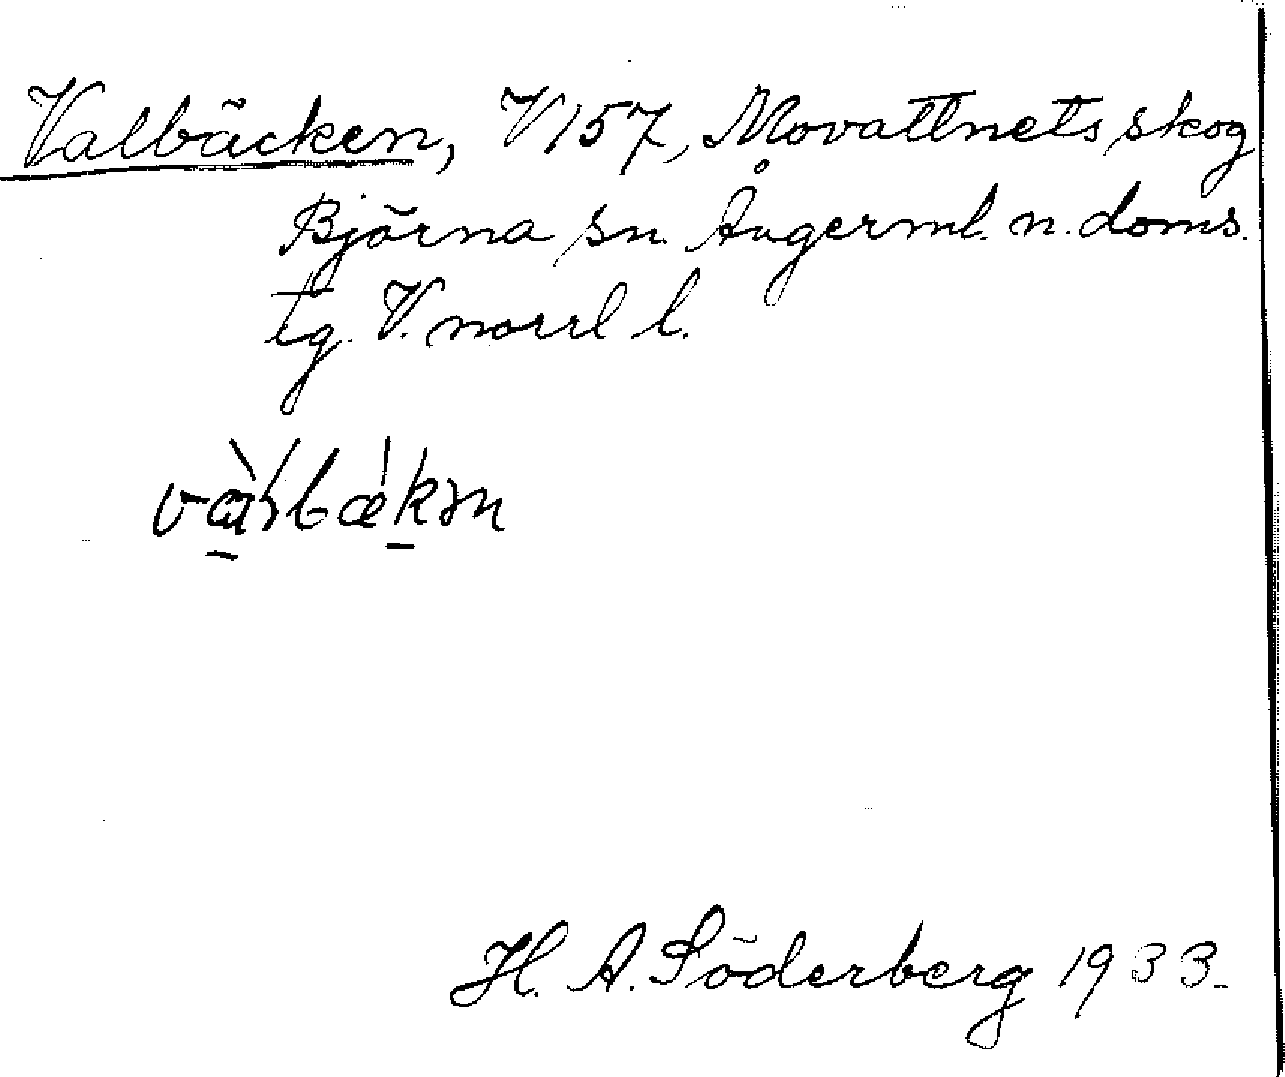 Valbäcken, V157, Movattnets skog
Björna sn. Ångerml. n. doms.
tg. V. norrl l.
H. A. Söderberg 1933.